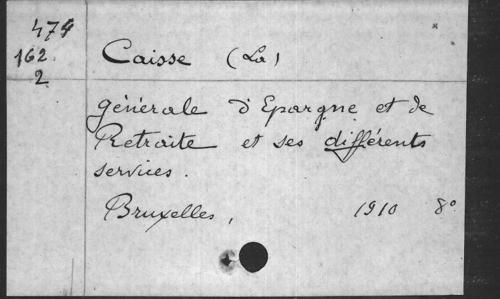 474
162
2
Caisse (La)
générale d'Epargne et de
Retraite et ses différents
services.
Bruxelles, 1910 8°